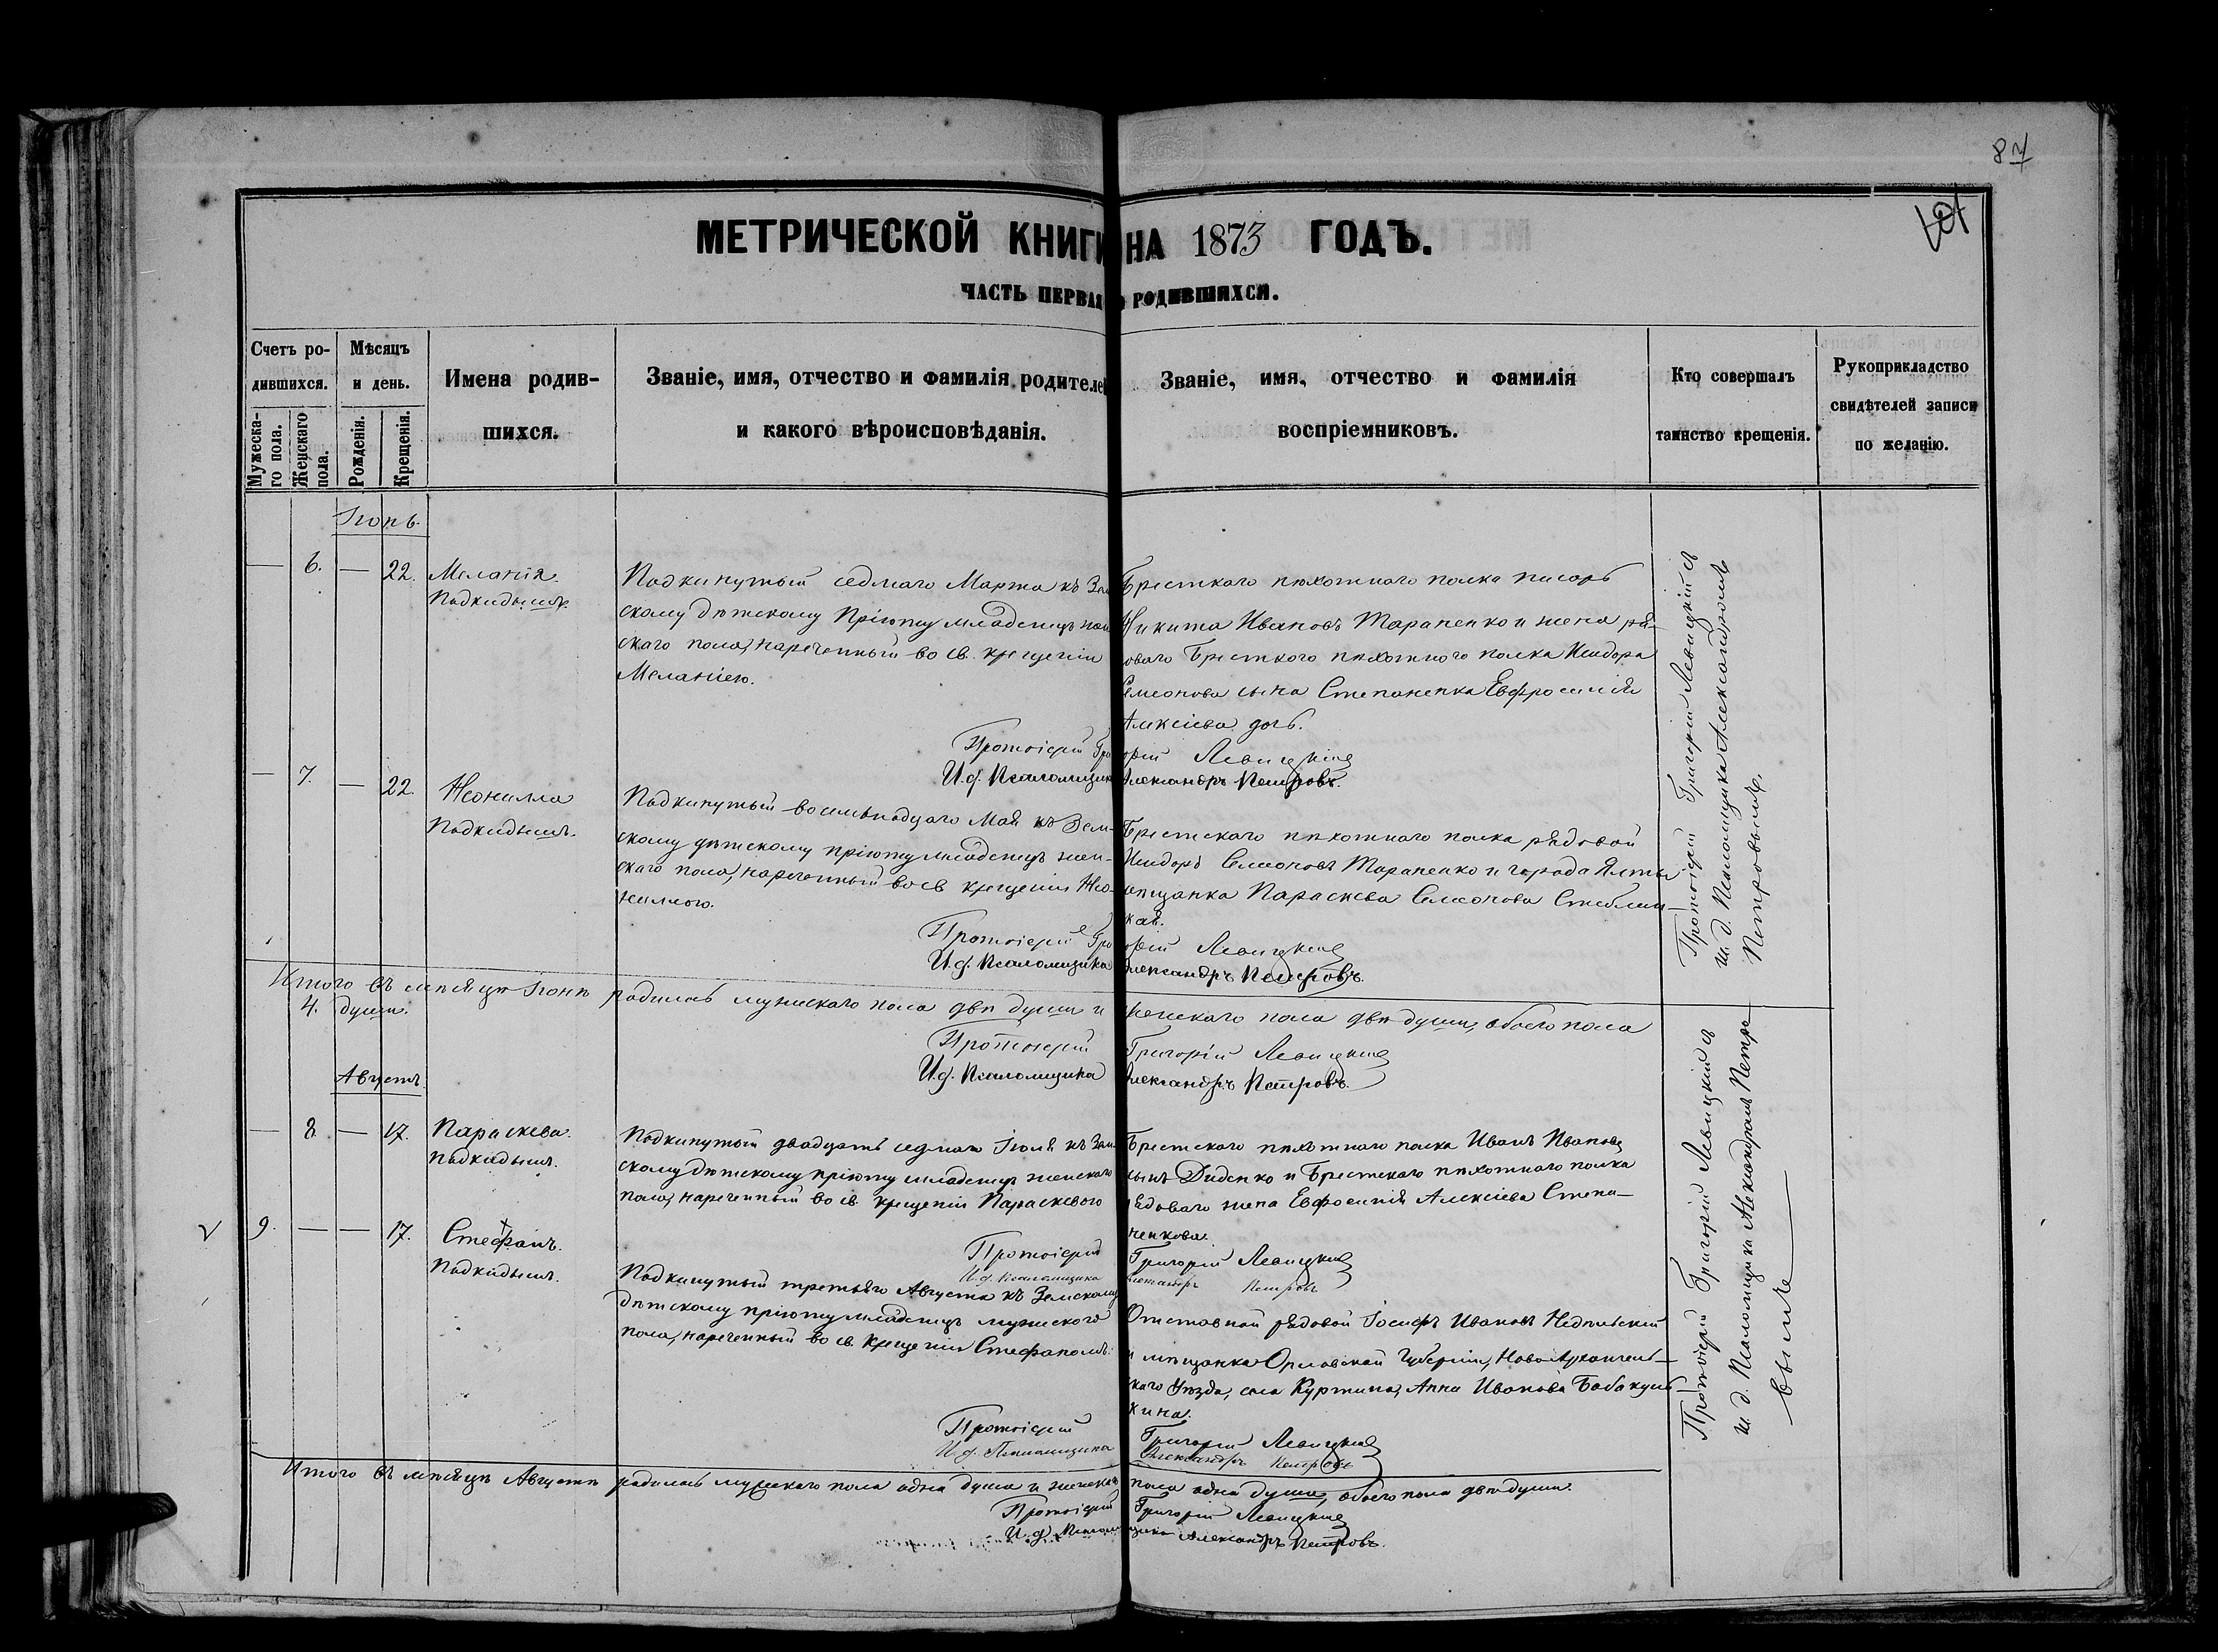 87
МЕТРИЧЕСКОЙ КНИГИ НА 1873 ГОДЪ.
ЧАСТЬ ПЕРВАЯ О РОДИВШИХСЯ.
Счетъ родившихся.
Мужескаго пола.
Женскаго пола.
Мѣсяцъ и день.
Рожденія.
Крещенія.
Имена родившихся.
Званіе, имя, отчество и фамилія родителей
и какого вѣроисповѣданія.
Званіе, имя, отчество и фамилія
воспріемниковъ.
Кто совершалъ
таинство крещенія.
Рукоприкладство
свидѣтелей записи
по желанію.
Іюнь.
— 6. — 22. Меланія.
Подкидышъ.
Подкинутый седмаго Марта къ Зем
скому дѣтскому Пріюту младенецъ жен
скаго пола, нареченный во св. крещеніи
Меланіею.
Брестскаго пѣхотнаго полка писарь
Никита Ивановъ Тараненко и жена ря-
доваго Брестского пѣхотного полка Исидора
Семеонова сына Степаненка Евфросинія
Алексіева дочь.
Протоіерей Григорій Левицкій
И.д. Псаломщика Александръ Петровъ.
— 7. — 22. Неонилла
Подкидышъ.
Подкинутый восемьнадцаго Мая къ Зем-
скому дѣтскому пріюту младенецъ жен-
скаго пола, нареченный во св крещеніи Нео-
ниллою.
Брестскаго пѣхотнаго полка рядовой
Исидоръ Семеоновъ Тараненко и города Ялты
мѣщанка Параскева Семеонова Стеблин-
кая.
Протоіерей Григорій Левицкій
И.д. Псаломщика Александръ Петровъ.
Протоіерей Григорій Левицкій съ
и. д. Псаломщика Александромъ
Петровымъ.
Итого въ мѣсяцѣ Іюнѣ родилось мужескаго пола двѣ души и женскаго пола двѣ души, обоего пола
4. души.
Протоіерей Григорій Левицкій
И.д. Псаломщика Александръ Петровъ.
Августъ.
— 8 — 17. Параскева.
Подкидышъ.
Подкинутый двадцать седмаго Іюля къ Зем-
скому дѣтскому пріюту младенецъ женскаго
пола, нареченный во св. крещеніи Параскевою
Брестскаго пѣхотнаго полка Иванъ Ивановъ
сынъ Диденко и Брестскаго пѣхотнаго полка
рядоваго жена Евфросинія Алексіева Степа-
ненкова.
Протоіерей Григорій Левицкій
И.д. Псаломщика Александръ Петровъ
9. — — 17. Стефанъ.
Подкидышъ.
Подкинутый третьяго Августа къ Земскому
дѣтскому пріюту младенецъ мужеского
пола, нареченный во св. крещеніи Стефаномъ.
Отставной рядовой Іосифъ Ивановъ
и мѣщанка Орловской Губерніи, Новоархангель-
скаго Уѣзда, села Куртина, Анна Иванова Бабакуш-
кина.
Протоіерей Григорій Левицкій
И.д. Псаломщика Александръ Петровъ
Протоіерей Григорій Левицкій съ
и. д. Псаломщика Александромъ Петро-
вымъ
Итого въ мѣсяцѣ Августѣ родилось мужескаго пола одна душа и женскаго пола одна душа, обоего пола двѣ души.
Протоіерей Григорій Левицкій
И.д. Псаломщика Александръ Петровъ.